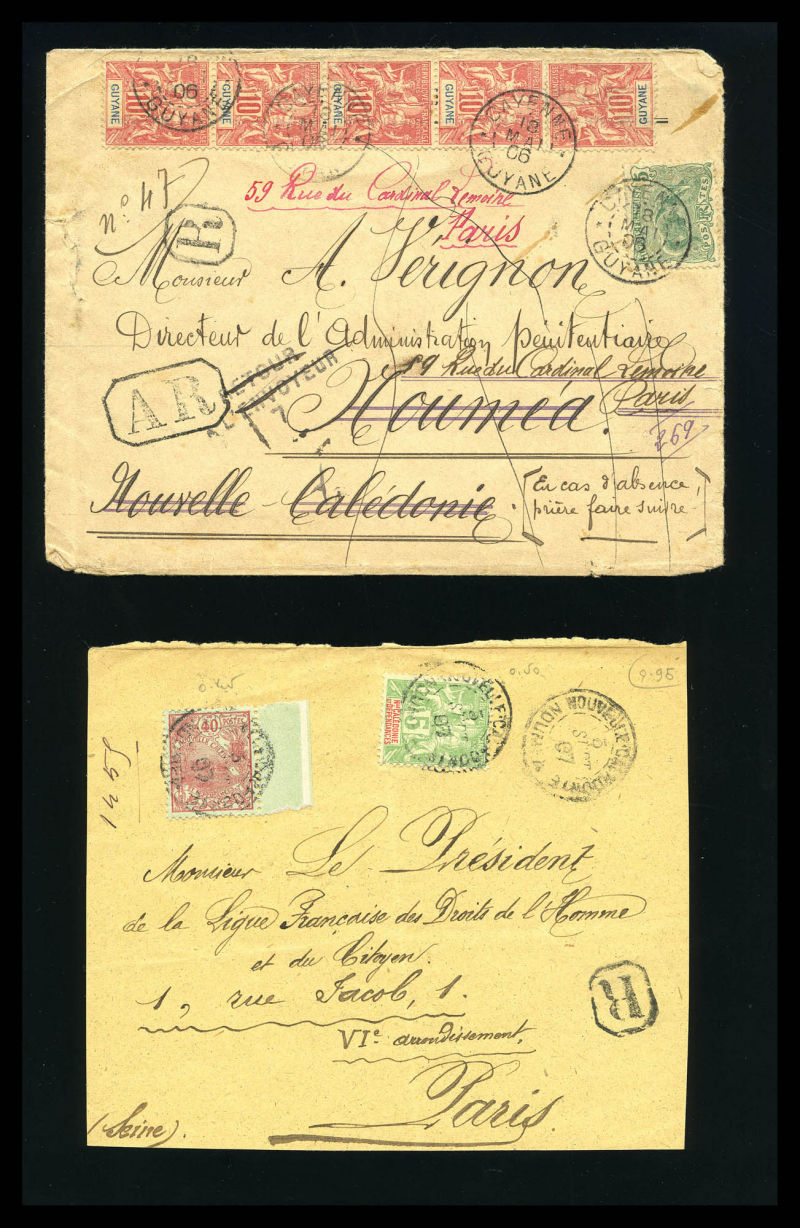 GUYANE 10 GUYANE 10 10 GUYANE 10 GUYANE 10
06
GUYANE
CAYENNE
18
MAI
06
GUYANE
5
POSTES
MAI
GUYANE
n° 47
R
59 Rue du Cardinal Lemoine
Paris
Monsieur A. Vérignon
Directeur de l'Administration pénitentiaire
59 Rue du Cardinal Lemoine
Paris
AR
RETOUR
A L'ENVOYEUR
Nouméa.
259
Nouvelle Calédonie.
(En cas d'absence,
prière faire suivre)
0.45
0.50
0.95
40 POSTES
5
Nlle CALÉDONIE
ET DÉPENDANCES
NOUVELLE CALEDONIE
5
SEPT
07
NOUMEA
Monsieur Le Président
de la Ligue Française des Droits de l'Homme
et du Citoyen.
1, rue Jacob, 1.
VIe arrondissement,
R
Paris.
(Seine).